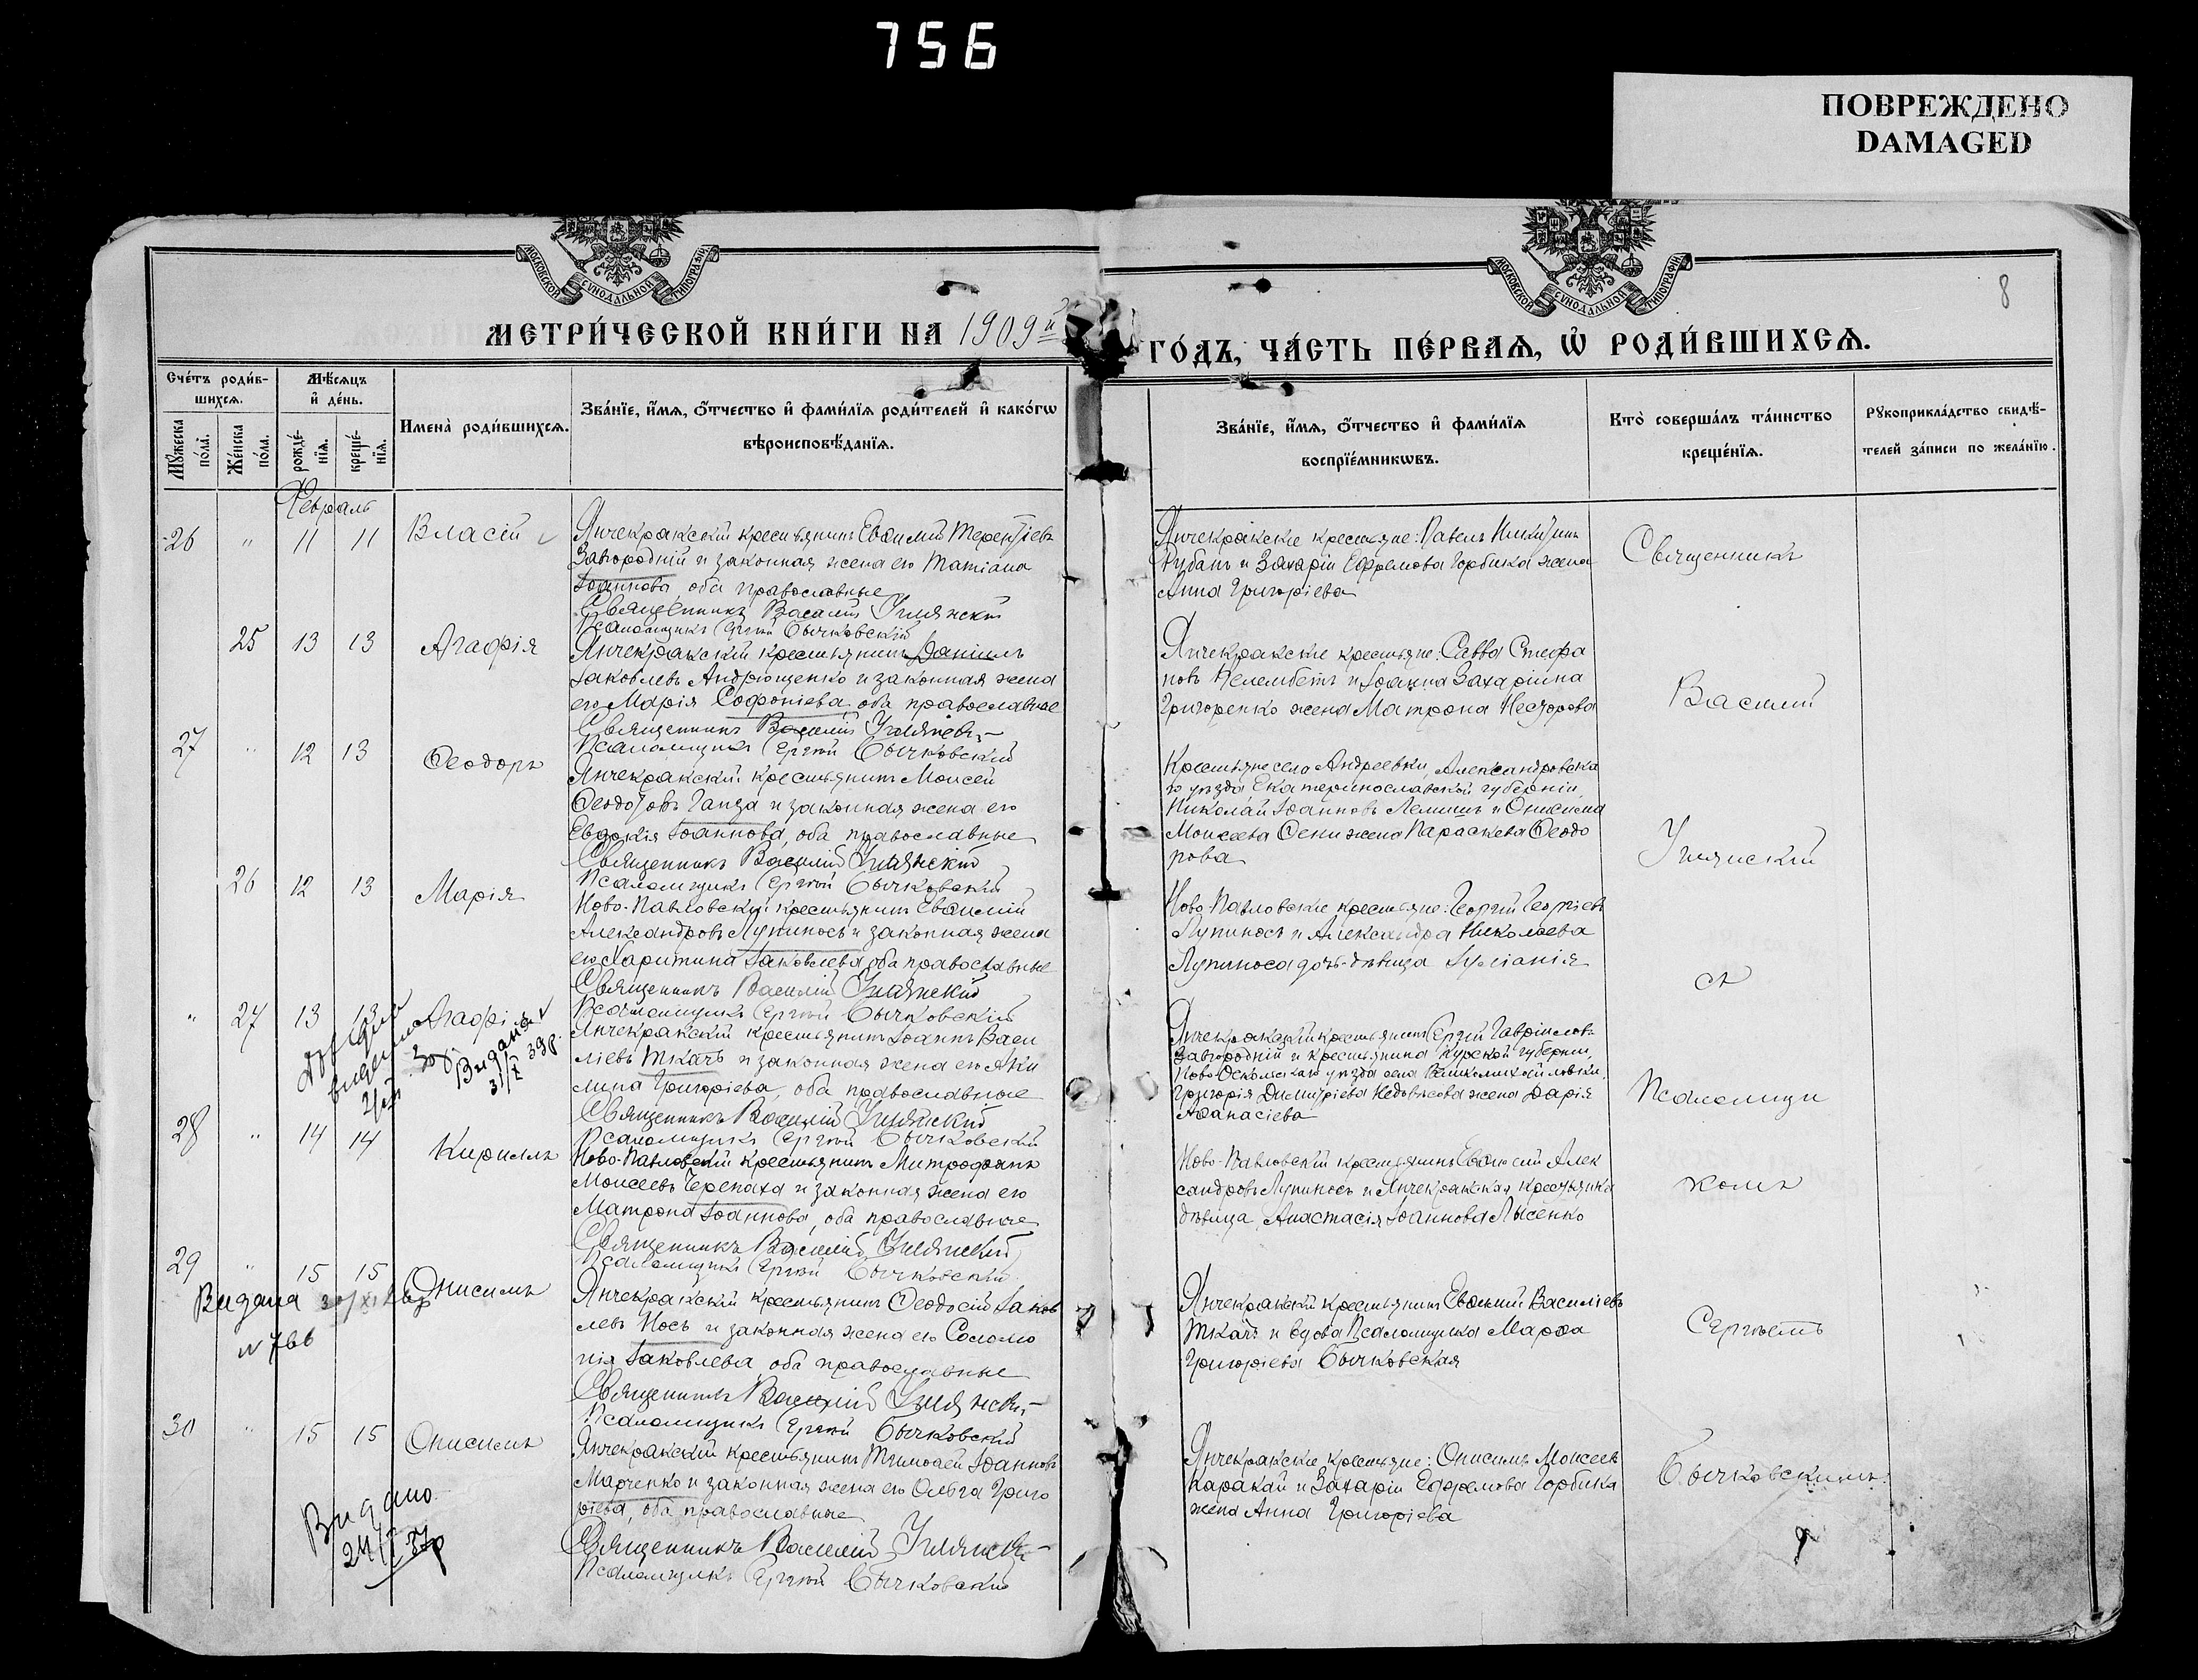 756
ПОВРЕЖДЕНО
DAMAGED
МОСКОВСКОЙ СѴНОДАЛЬНОЙ ТИПОГРАФІИ
МОСКОВСКОЙ СѴНОДАЛЬНОЙ ТИПОГРАФІИ
8
МЕТРИ́ЧЕСКОЙ КНИ́ГИ НА 1909й
ГО́ДЪ, ЧА́СТЬ ПЕ́РВАѦ, Ѡ҆ РОДИ́ВШИХСѦ.
Сче́тъ роди́в-
шихсѧ.
Мѣ́сѧцъ
и҆ де́нь.
Мꙋ́жеска
по́ла.
Же́нска
по́ла.
рожде́-
нїѧ.
креще́-
нїѧ.
Имена̀ роди́вшихсѧ.
Зва́нїе, и҆́мѧ, ѻ҆́тчество и҆ фами́лїѧ роди́телей и҆ како́гѡ
вѣроисповѣ́данїѧ.
Зва́нїе, и҆́мѧ, ѻ҆́тчество и҆ фами́лїѧ
воспрїе́мникѡвъ.
Кто̀ соверша́лъ та́инство
креще́нїѧ.
Рꙋкоприкла́дство свидѣ́-
телей за́писи по жела́нїю.
Февраль
26 " 11 11 Власій
Янчекракскій крестьянинъ Евѳимій Терентіевъ
Завгородній и законная жена его Татіана
Іоаннова, оба православные
Священникъ Василій
Псаломщикъ Сергій Бычковскій
Янчекракскіе крестьяне: Павелъ Никитинъ
Рубанъ и Захарія Ефремова Горбика жена
Анна Григоріева
Священникъ
25 13 13 Агаѳія
Янчекракскій крестьянинъ Даніилъ
Іаковлевъ Андрющенко и законная жена
его Марія Софоніева, оба православные
Священникъ Василій
Псаломщикъ Сергій Бычковскій
Янчекракскіе крестьяне: Савва Стефа
новъ и Іоанна Захаріина
Григоренко жена Матрона Несторова
Василій
27 " 12 13 Ѳеодоръ
Янчекракскій крестьянинъ Моисей
Ѳеодотовъ Ганза и законная жена его
Евдокія Іоаннова, оба православные
Священникъ Василій
Псаломщикъ Сергій Бычковскій
Крестьяне села Андреевки, Александровска
го уѣзда Екатеринославской губерніи,
Николай Іоанновъ и Онисима
Моисеева жена Параскева Ѳеодо
рова
26 12 13 Марія
Ново-Павловскій крестьянинъ Евѳимій
Александровъ Лупиносъ и законная жена
его Харитина Іаковлева, оба православные
Священникъ Василій
Псаломщикъ Сергій Бычковскій
Ново-Павловскіе крестьяне: Георгій Георгіевъ
Лупиносъ и Александра Николаева
Лупиноса дочь-дѣвица Іуліанія
съ
" 27 13 13 Агаѳія
Видана
31/X 39р.
Янчекракскій крестьянинъ Іоаннъ Васи
ліевъ Ткачъ и законная жена его Аки
лина Григоріева, оба православные
Священникъ Василій
Псаломщикъ Сергій Бычковскій
Янчекракскій крестьянинъ Сергій Гавріиловъ
Завгородній и крестьянина Курской губерніи,
Ново-Оскольскаго уѣзда села Великомихайловки,
Григорія Димитріева Недовѣсова жена Дарія
Аѳанасіева
Псаломщи
28 " 14 14 Кириллъ
Ново-Павловскій крестьянинъ Митрофанъ
Моисеевъ Черепаха и законная жена его
Матрона Іоаннова, оба православные
Священникъ Василій
Псаломщикъ Сергій Бычковскій
Ново-Павловскій крестьянинъ Евѳимій Алек
сандровъ Лупиносъ и Янчекракская крестьянка
дѣвица, Анастасія Іоаннова Лысенко
комъ
29 " 15 15 Онисимъ
Видана
N 766
Янчекракскій крестьянинъ Ѳеодосій Іаков
левъ Носъ и законная жена его Соломо
нія Іаковлева, оба православные
Священникъ Василій
Псаломщикъ Сергій Бычковскій
Янчекракскій крестьянинъ Евѳимій Василіевъ
Ткачъ и вдова Псаломщика Марѳа
Григоріева Бычковская
Сергіемъ
30 " 15 15 Онисимъ
Видано
Янчекракскій крестьянинъ Тимоѳей Іоанновъ
Марченко и законная жена его Ольга Григо
ріева, оба православные
Священникъ Василій
Псаломщикъ Сергій Бычковскій
Янчекракскіе крестьяне: Онисимъ Моисеевъ
Каракай и Захарія Ефремова Горбика
жена Анна Григоріева
Бычковскимъ.